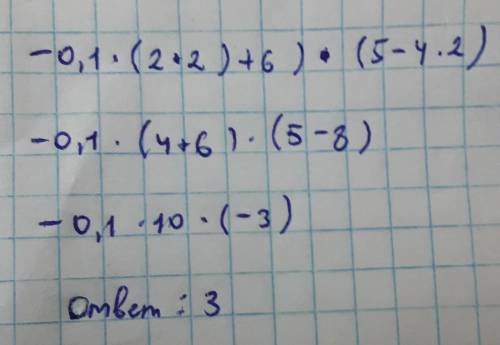 -0,1 · (2·2)+6) · (5-4·2)
-0,1 · (4+6) · (5-8)
-0,1 · 10 · (-3)
Ответ : 3